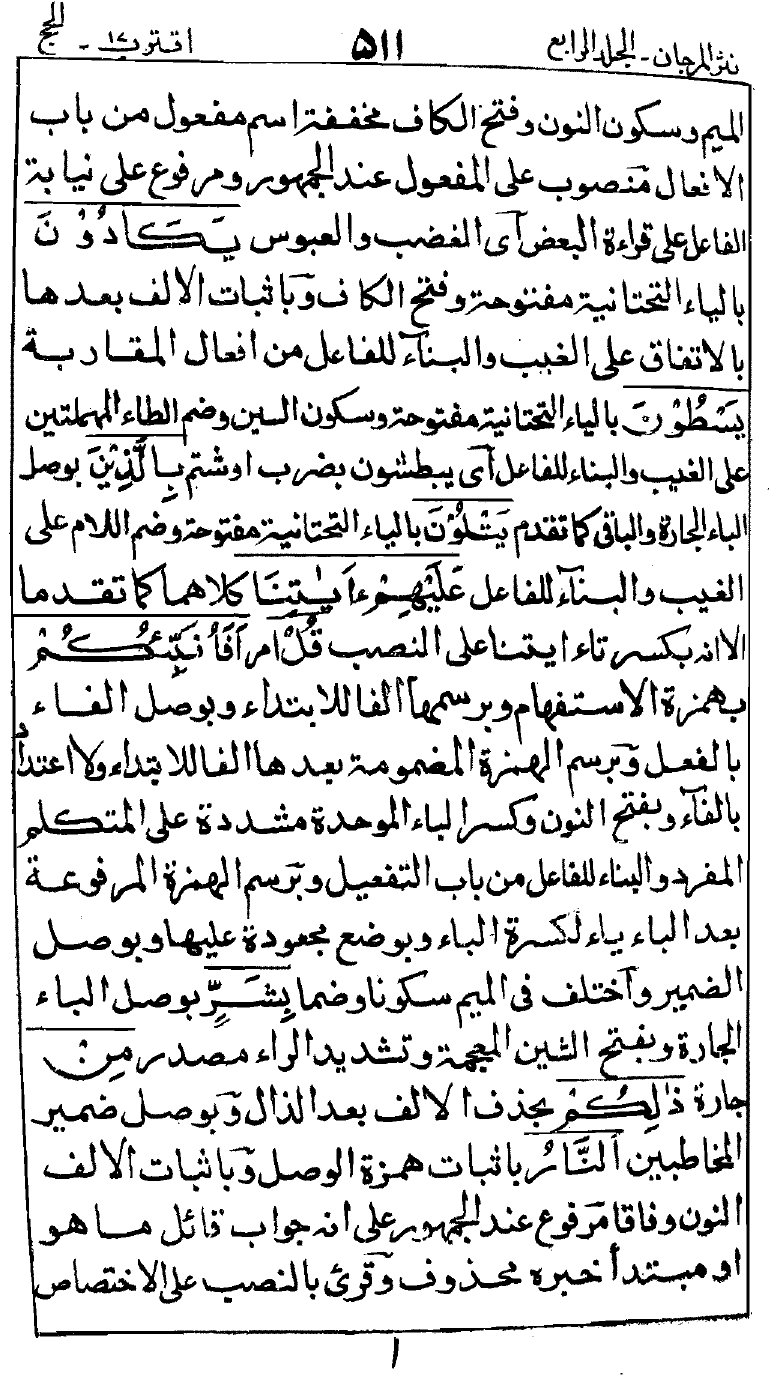 نثر المرجان - الجلد الرابع ۵۱۱ اقترب ۱۷ - الحج
الميم وسكون النون وفتح الكاف مخففة اسم مفعول من باب
الافعال منصوب على المفعول عند الجمهور ومرفوع على نيابة
الفاعل على قراءة البعض آى الغضب والعبوس يَكَادُوْنَ
بالياء التحتانية مفتوحة وفتح الكاف وباثبات الالف بعدها
بالاتفاق على الغيب والبنآء للفاعل من افعال المقاربة
يَسْطُوْنَ بالياء التحتانية مفتوحة وسكون السين وضم الطاء المهملتين
على الغيب والبناء للفاعل آى يبطشون بضرب اوشتم بِالَّذِيْنَ بوصل
الباء الجارة والباقى كما تقدم يَتْلُوْنَ بالياء التحتانية مفتوحة وضم اللام على
الغيب والبنآء للفاعل عَلَيْهِمْ ءَايٰتِنَا كلاهما كما تقدما
الا انه بكسر تاء ايتنا على النصب قُلْ امر اَفَاُنَبِّئُكُمْ
بهمزة الاستفهام وبرسمها الفا للابتداء وبوصل الفاء
بالفعل وبرسم الهمزة المضمومة بعدها الفا للابتداء ولا اعتداد
بالفآء وبفتح النون وكسر الباء الموحدة مشددة على المتكلم
المفرد والبناء للفاعل من باب التفعيل وبرسم الهمزة المرفوعة
بعد الباء ياء لكسرة الباء وبوضع مجعودة عليها وبوصل
الضمير وآختلف فى الميم سكونا وضما بِشَرٍّ بوصل الباء
الجارة وبفتح الشين المعجمة وتشديد الراء مصدر مِنْ
جارة ذٰلِكُمْ بحذف الالف بعد الذال وبوصل ضمير
المخاطبين اَلنَّارُ باثبات همزة الوصل وباثبات الالف
النون وفاقا مرفوع عند الجمهور على انه جواب قائل ما هو
او مبتدأ خبره محذوف وقرئ بالنصب على الاختصاص
۱